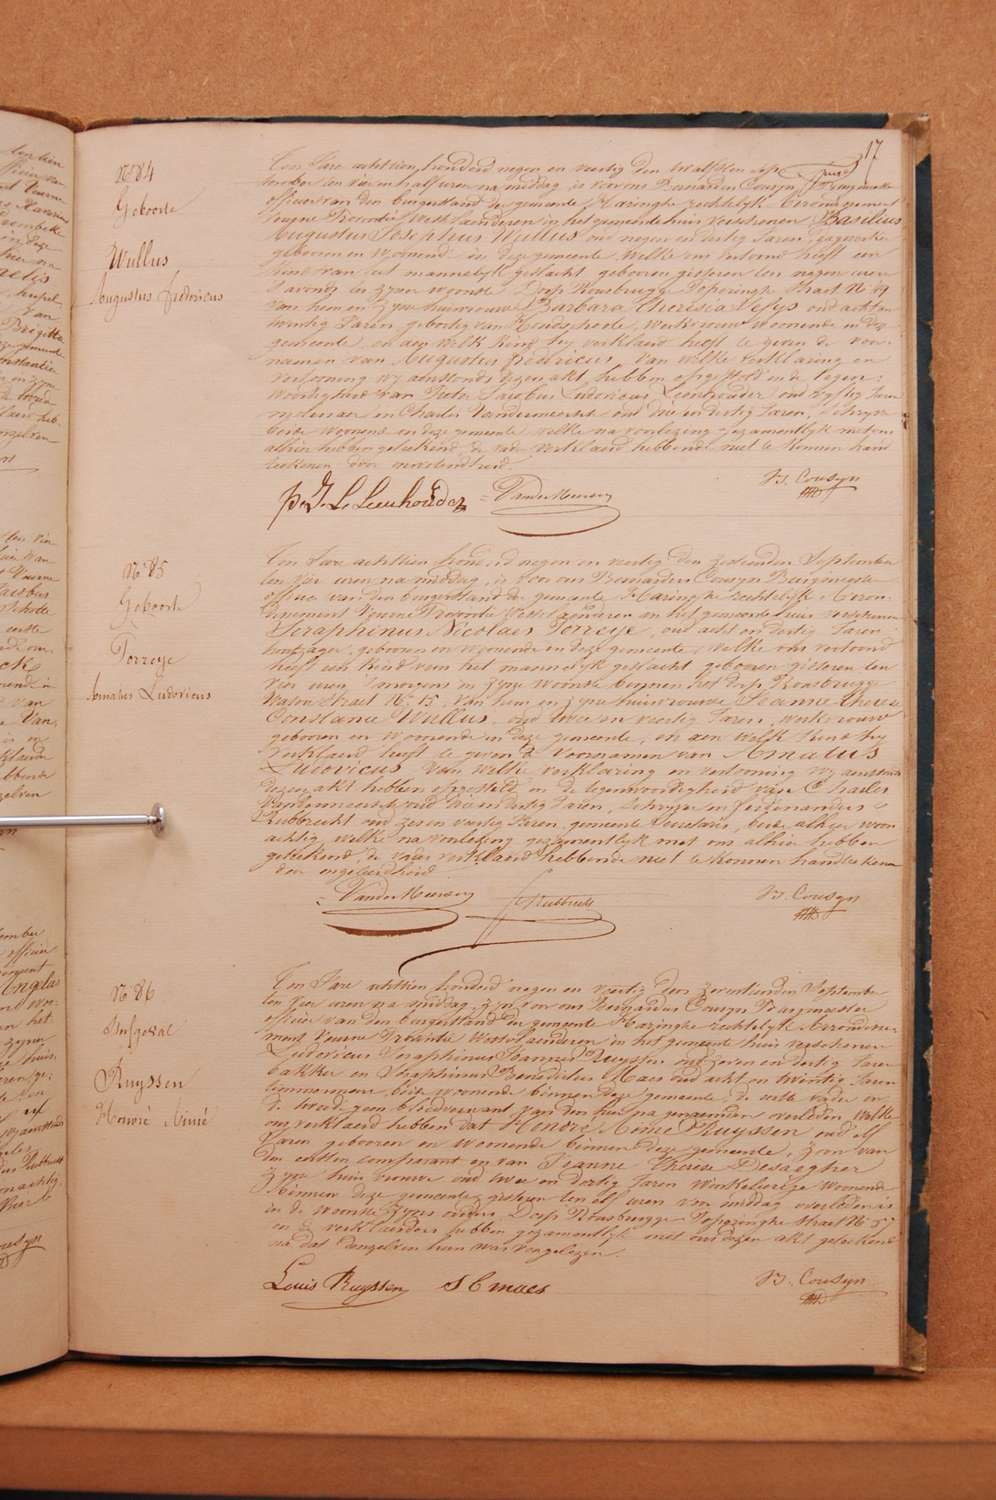 17
N° 84
Geboorte
Wullus
Augustus Fredericus
Ten Jare achttien honderd negen en veertig den twalfsten Sep-
tember ten vier en half uren na middag, is voor ons Bernardus Cousyn Burgmeester
officier van den burgerstand der gemeente Haringhe rechtelyk Arrondissement
Veurne Provincie Westvlaenderen in het gemeentehuis verschenen Basilius
Augustus Josephus Wullus oud negen en dertig Jaren,
geboren en woonende in deze gemeente welke ons vertoond heeft een
kind van het mannelyk geslacht geboren gisteren ten negen uren
's avonds in zyne woonste Dorp Rousbrugge Poperinghe Straet N° 49
van hem en zyne huisvrouw Barbara Theresia Velys oud achten
twintig Jaren, geboortig van Hondschoote, werkvrouw woonende in deze
gemeente, en aen welk kind hy verklaerd heeft te geven de voor-
namen van Augustus Fredericus, van welke verklaring en
vertooning wy aenstonds dezen akt hebben opgesteld in de tegen-
woordigheid van Pieter Jacobus Ludovicus Leenhouder oud vyftig Jaren
molenaer en Charles Vandermeersch oud drie en dertig Jaren, Schryver
beide woonende in deze gemeente welke na voorlezing gezamentlyk met ons
alhier hebben geteekend, de vader verklaerd hebbende niet te konnen hand
teekenen door onwetendheid.
P. J. L. Leenhouder
VanderMeersch
B. Cousyn
N° 85
Geboorte
Torreye
Amatus Ludovicus
Ten Jare achttien honderd negen en veertig den zestienden September
ten vier uren na middag, is voor ons Bernardus Cousyn Burgmeester
officier van den burgerstand der gemeente Haringhe rechtelyk Arron-
dissement Veurne Provincie Westvlaenderen in het gemeente huis verschenen
Seraphinus Nicolaes Torreye, oud acht en dertig Jaren
houtzager, geboren en woonende in deze gemeente, welke ons vertoond
heeft een kind van het mannelyk geslacht geboren gisteren ten
vier uren 's morgens in zyne woonste binnen het dorp Rousbrugge
Straet N° 15, van hem en zyne huisvrouw Jeanne Therese
Constance Wullus, oud twee en veertig Jaren, werkvrouw
geboren en woonende in deze gemeente, en aen welk kind hy
verklaerd heeft te geven de voornamen van Amatus
Ludovicus van welke verklaring en vertooning wy aenstonds
dezen akt hebben opgesteld in de tegenwoordigheid van Charles
Vandermeersch oud drie en dertig Jaren, Schryver en Ferdinandus
Rubbrecht oud zes en veertig Jaren, gemeente Secretaris, beide alhier woon
achtig welke na voorlezing gezamentlyk met ons alhier hebben
geteekend, de vader verklaerd hebbende niet te konnen handteekenen
door ongeleerdheid
VanderMeersch
F. Rubbrecht
B. Cousyn
N° 86
Sterfgeval
Ruyssen
Honoré Aimé
Ten Jare achttien honderd negen en veertig den September
ten vier uren na middag, zyn voor ons Bernardus Cousyn Burgmeester
officier van den burgerstand der gemeente Haringhe rechtelyk Arrondisse-
ment Veurne Provintie Westvlaenderen in het gemeente huis verschenen
Ludovicus Seraphinus Joannes Ruyssen oud zeven en dertig Jaren
bakker en Seraphinus Benedictus Maes oud acht en twintig Jaren
timmerman, beide woonende binnen deze gemeente, de eerste vader en
de tweede geen bloedverwant van den hier na genoemden overleden, welke
ons verklaerd hebben dat Honoré Aimé Ruyssen oud elf
Jaren geboren en woonende binnen deze gemeente, zoon van
den eersten comparant en van Jeanne Therese Desaegher
zyne huisvrouwe oud twee en dertig Jaren Winkelierige woonende
binnen deze gemeente, gisteren ten elf uren voor middag overleden is
in de woonste zyns ouders Dorp Rousbrugge Poperinghe straet N° 57
en de verklaerders hebben gezamentlyk met ons dezen akt geteekend
na dat denzelven hun was voorgelezen.
Louis Ruyssen
S B maes
B. Cousyn